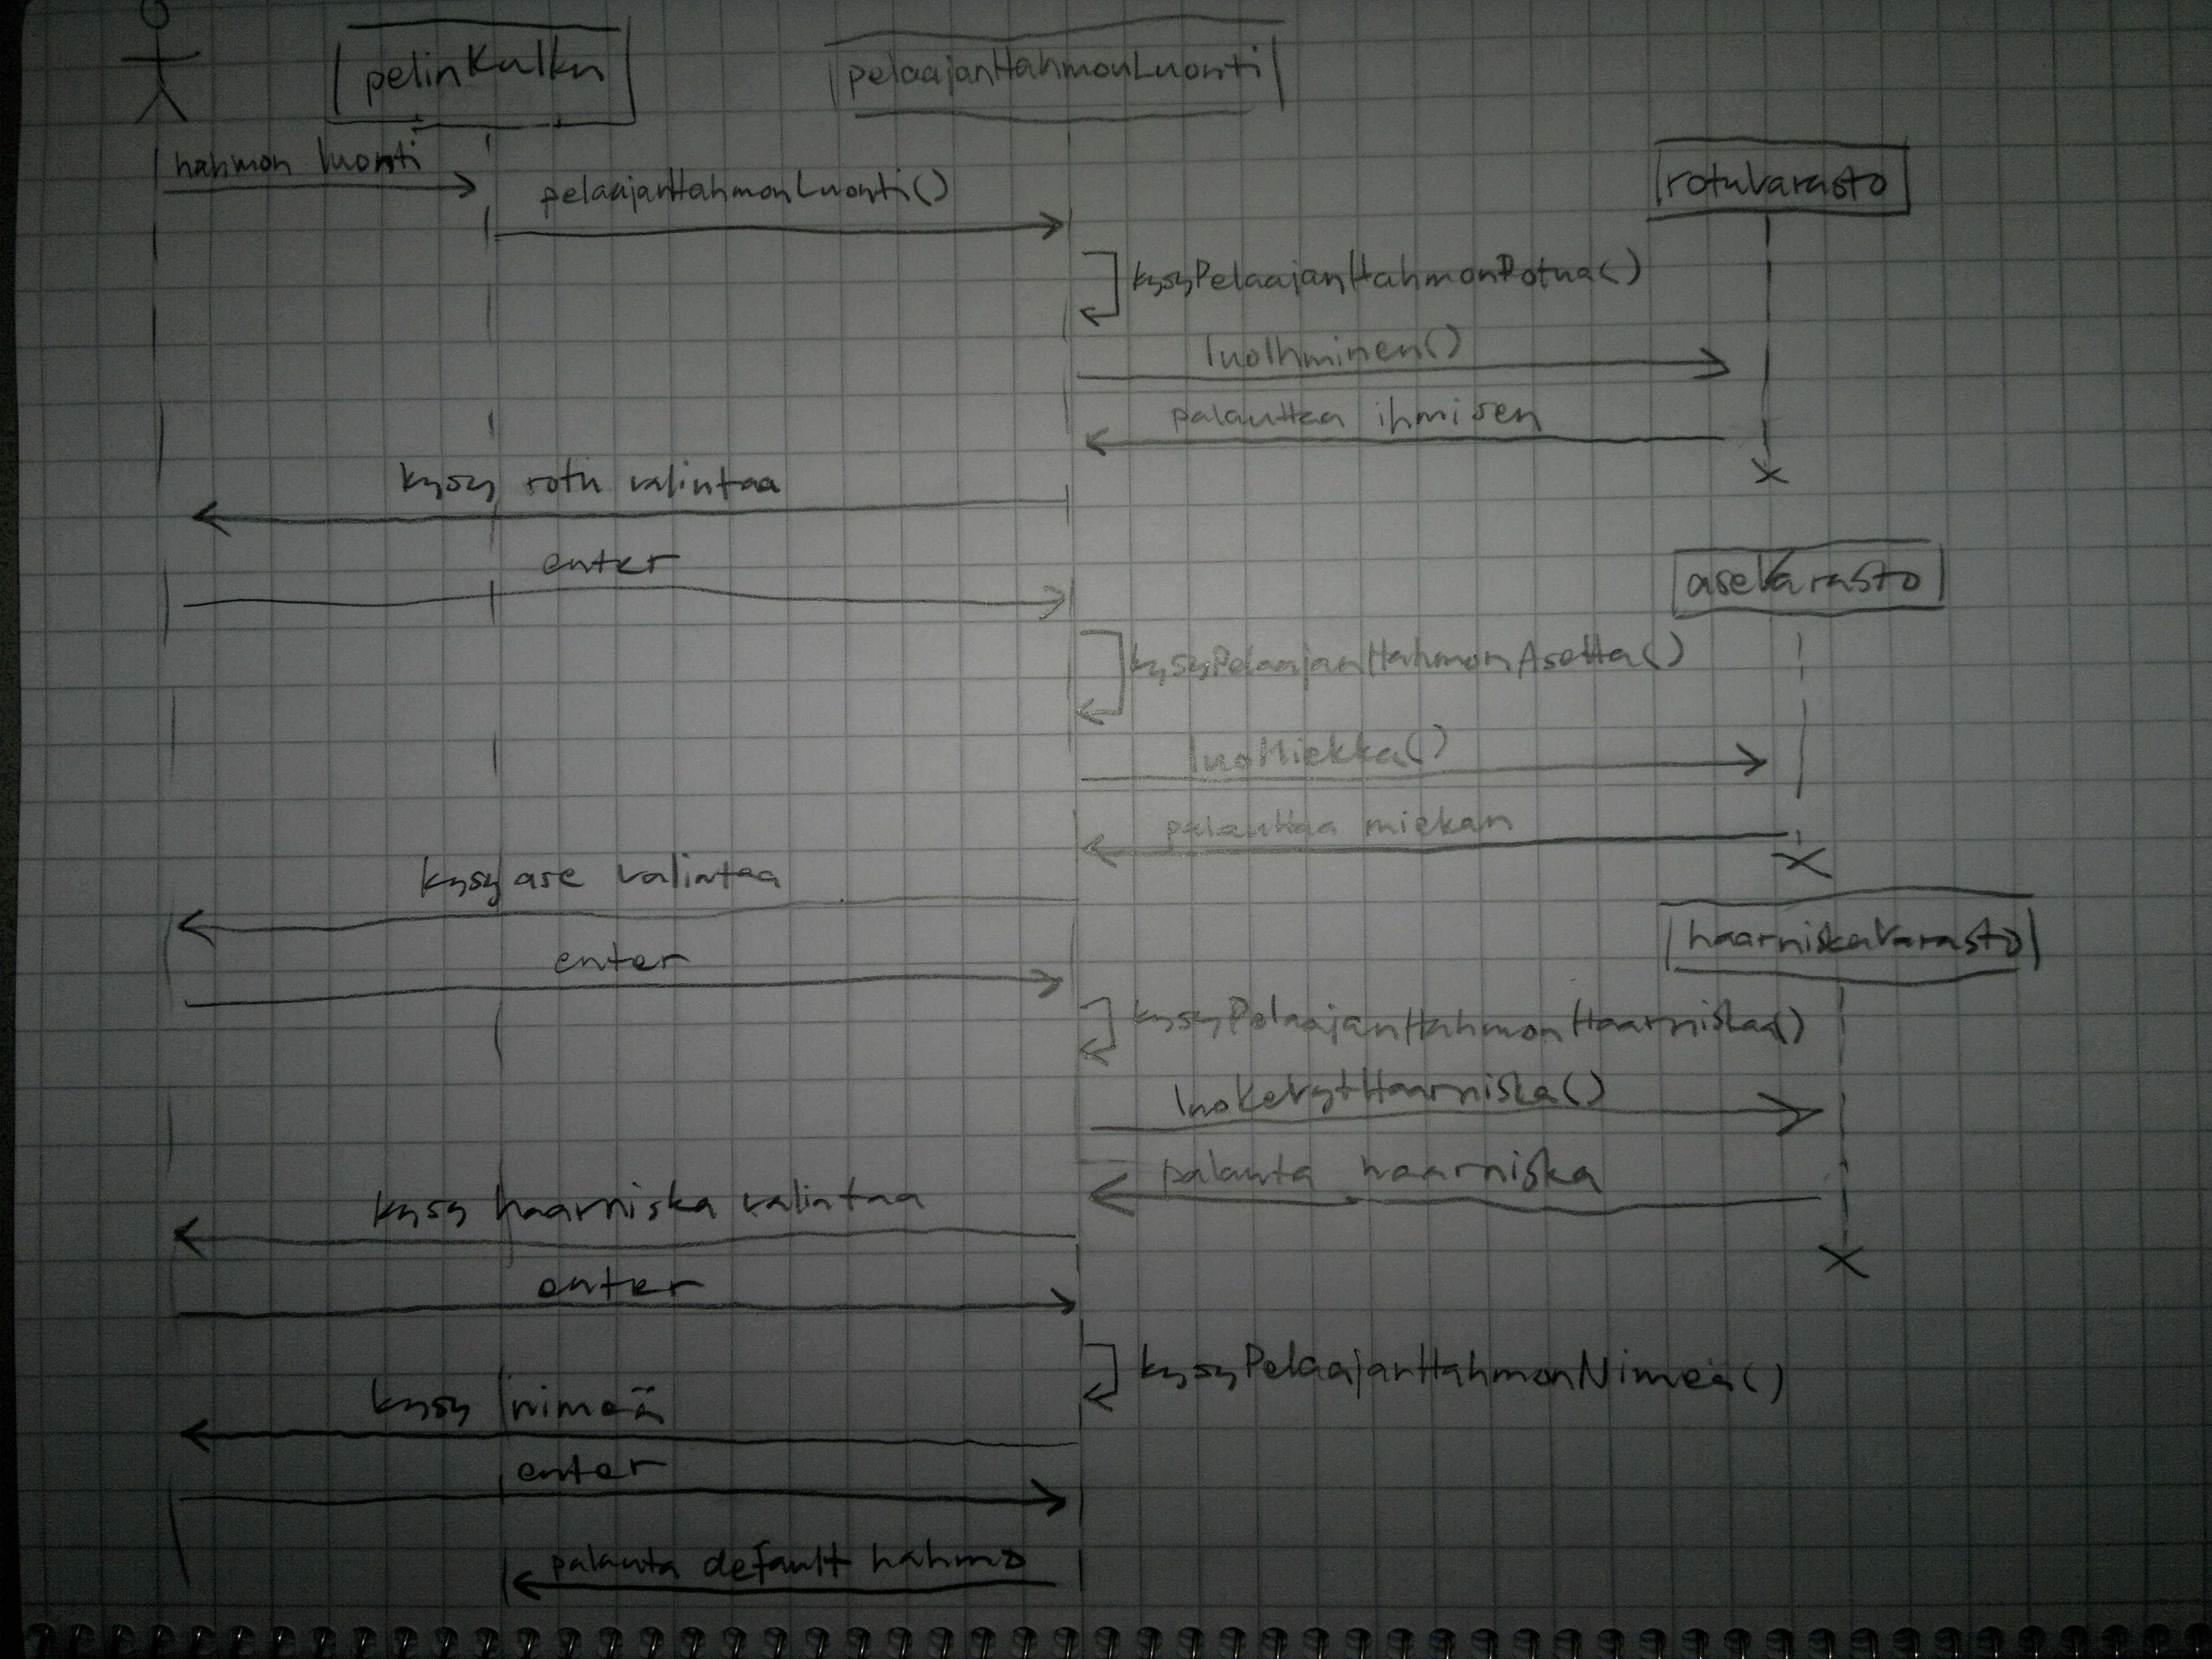 pelinKulku
pelaajanHahmonLuonti
hahmon luonti
pelaajanHahmonLuonti()
rotuVarasto
kysyPelaajanHahmonRotua()
luoIhminen()
palauttaa ihmisen
kysy rotu valintaa
enter
aseVarasto
kysyPelaajanHahmonAsetta()
luoMiekka()
palauttaa miekan
kysy ase valintaa
enter
haarniskaVarasto
kysyPelaajanHahmonHaarniskaa()
luoKevytHaarniska()
palauta haarniska
kysy haarniska valintaa
enter
kysyPelaajanHahmonNimeä()
kysy nimeä
enter
palauta default hahmo